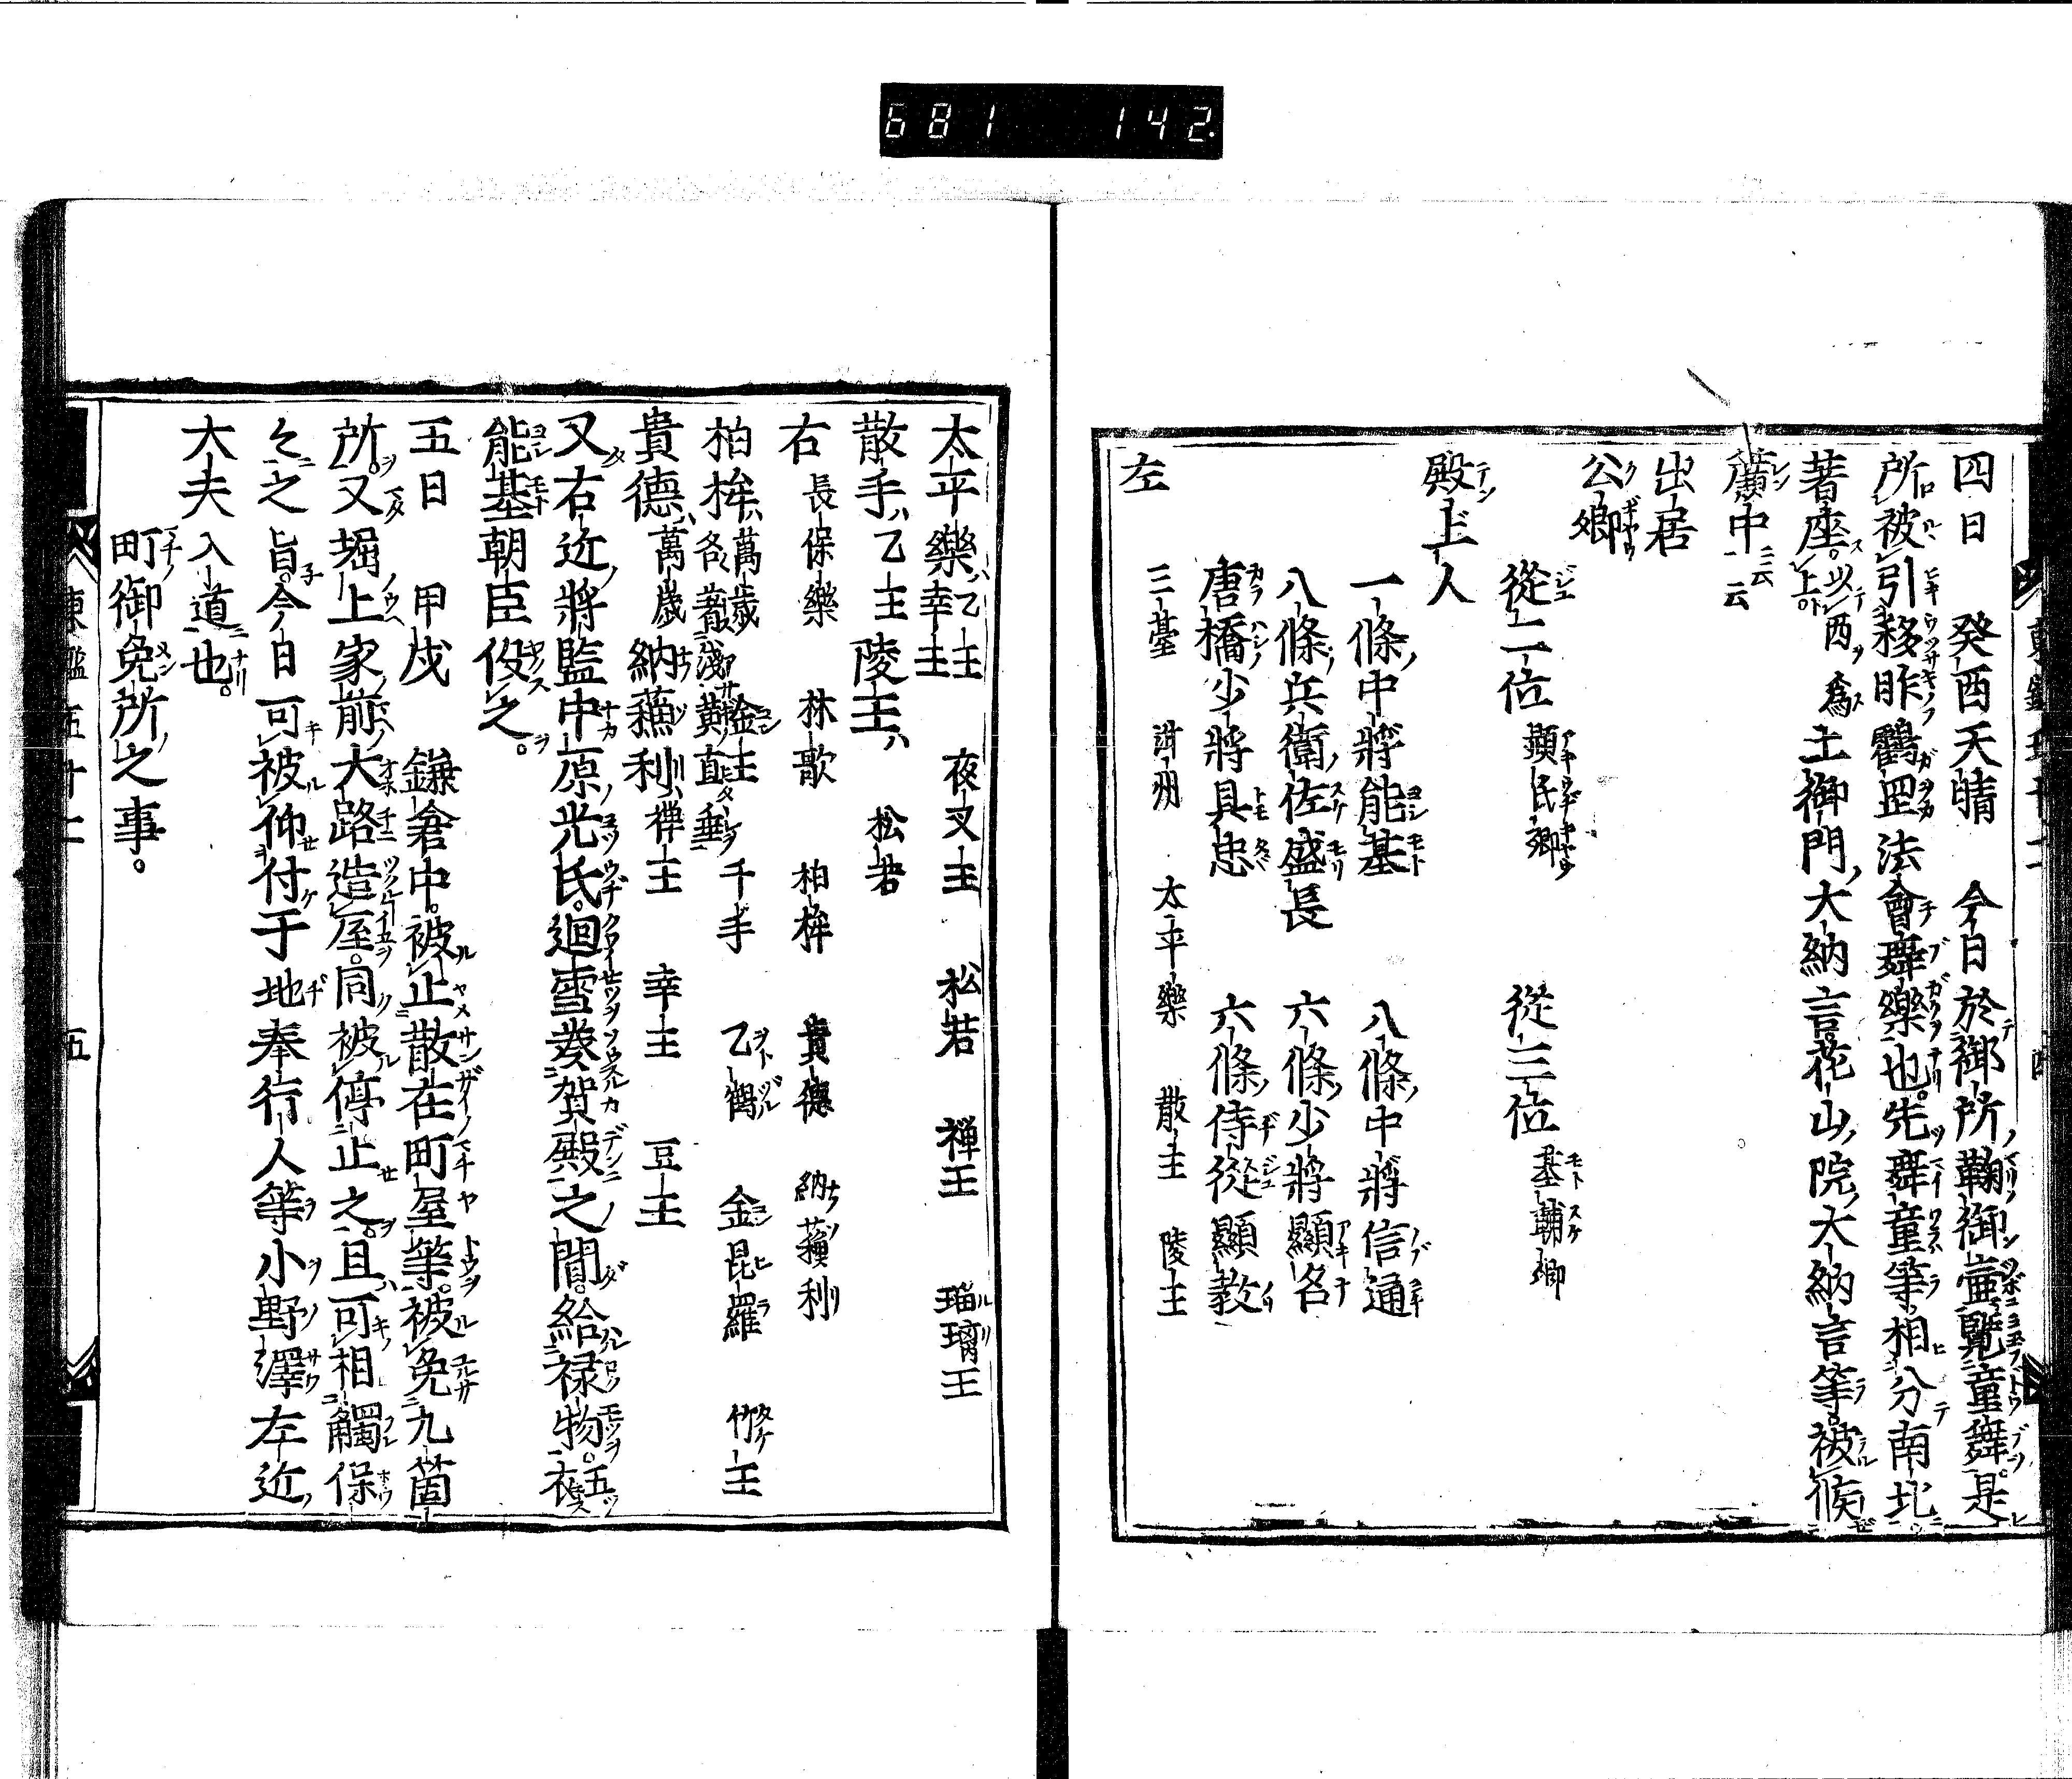 681 142
四日 癸酉天晴 今日於御所鞠御壺覽童舞是
所被引移昨鶴岡法會舞樂也先舞童等相分南北
著座以西爲上土御門大納言花山院大納言等被候
廉中云云
出居
公卿
從二位顯氏卿 從三位基輔卿
殿上人
一條中將能基 八條中將信通
八條兵衛佐盛長 六條少將顯名
唐橋少將具忠 六條侍從顯教
左 三臺 甘州 太平樂 散手 陵王
太平樂乙王幸王 夜叉王 松若 禅王 瑠璃王
散手乙王 陵王 松若
右 長保樂 林歌 柏桙 貴德 納蘓利
柏桙萬歳各著淺黄直垂 金王 千手 乙鶴 金毘羅 竹王
貴德萬歳 納蘓利禅王 幸王 豆王
又右近將監中原光氏廻雪羙賀殿之間給禄物五衣
能基朝臣伇之
五日 甲戌 鎌倉中被止散在町屋等被免九箇
所又堀上家前大路造屋同被停止之且可相觸保
々之旨今日可被仰付于地奉行人等小野澤左近
大夫入道也
町御免所之事
東鑑五十二 五